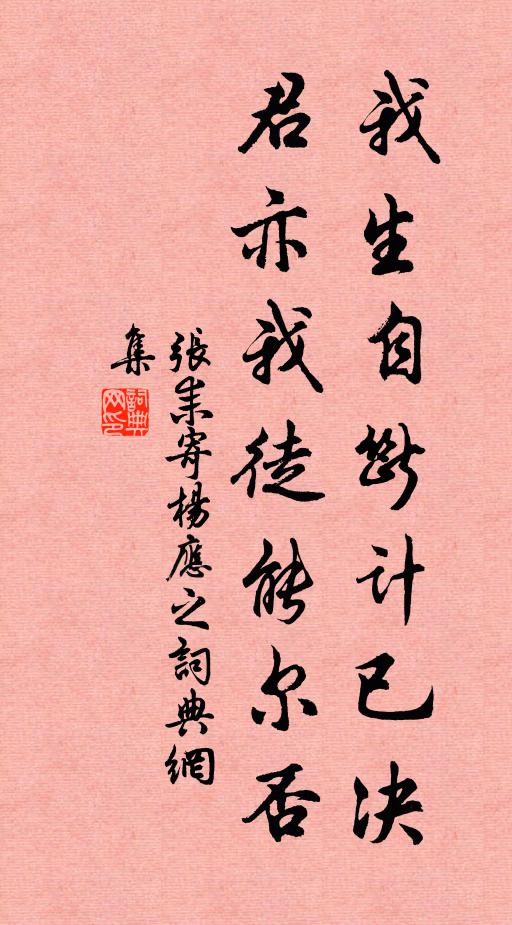 我生自斷计已决
君亦我徒能尔否
張耒寄楊應之詞典網
集
詞典网印